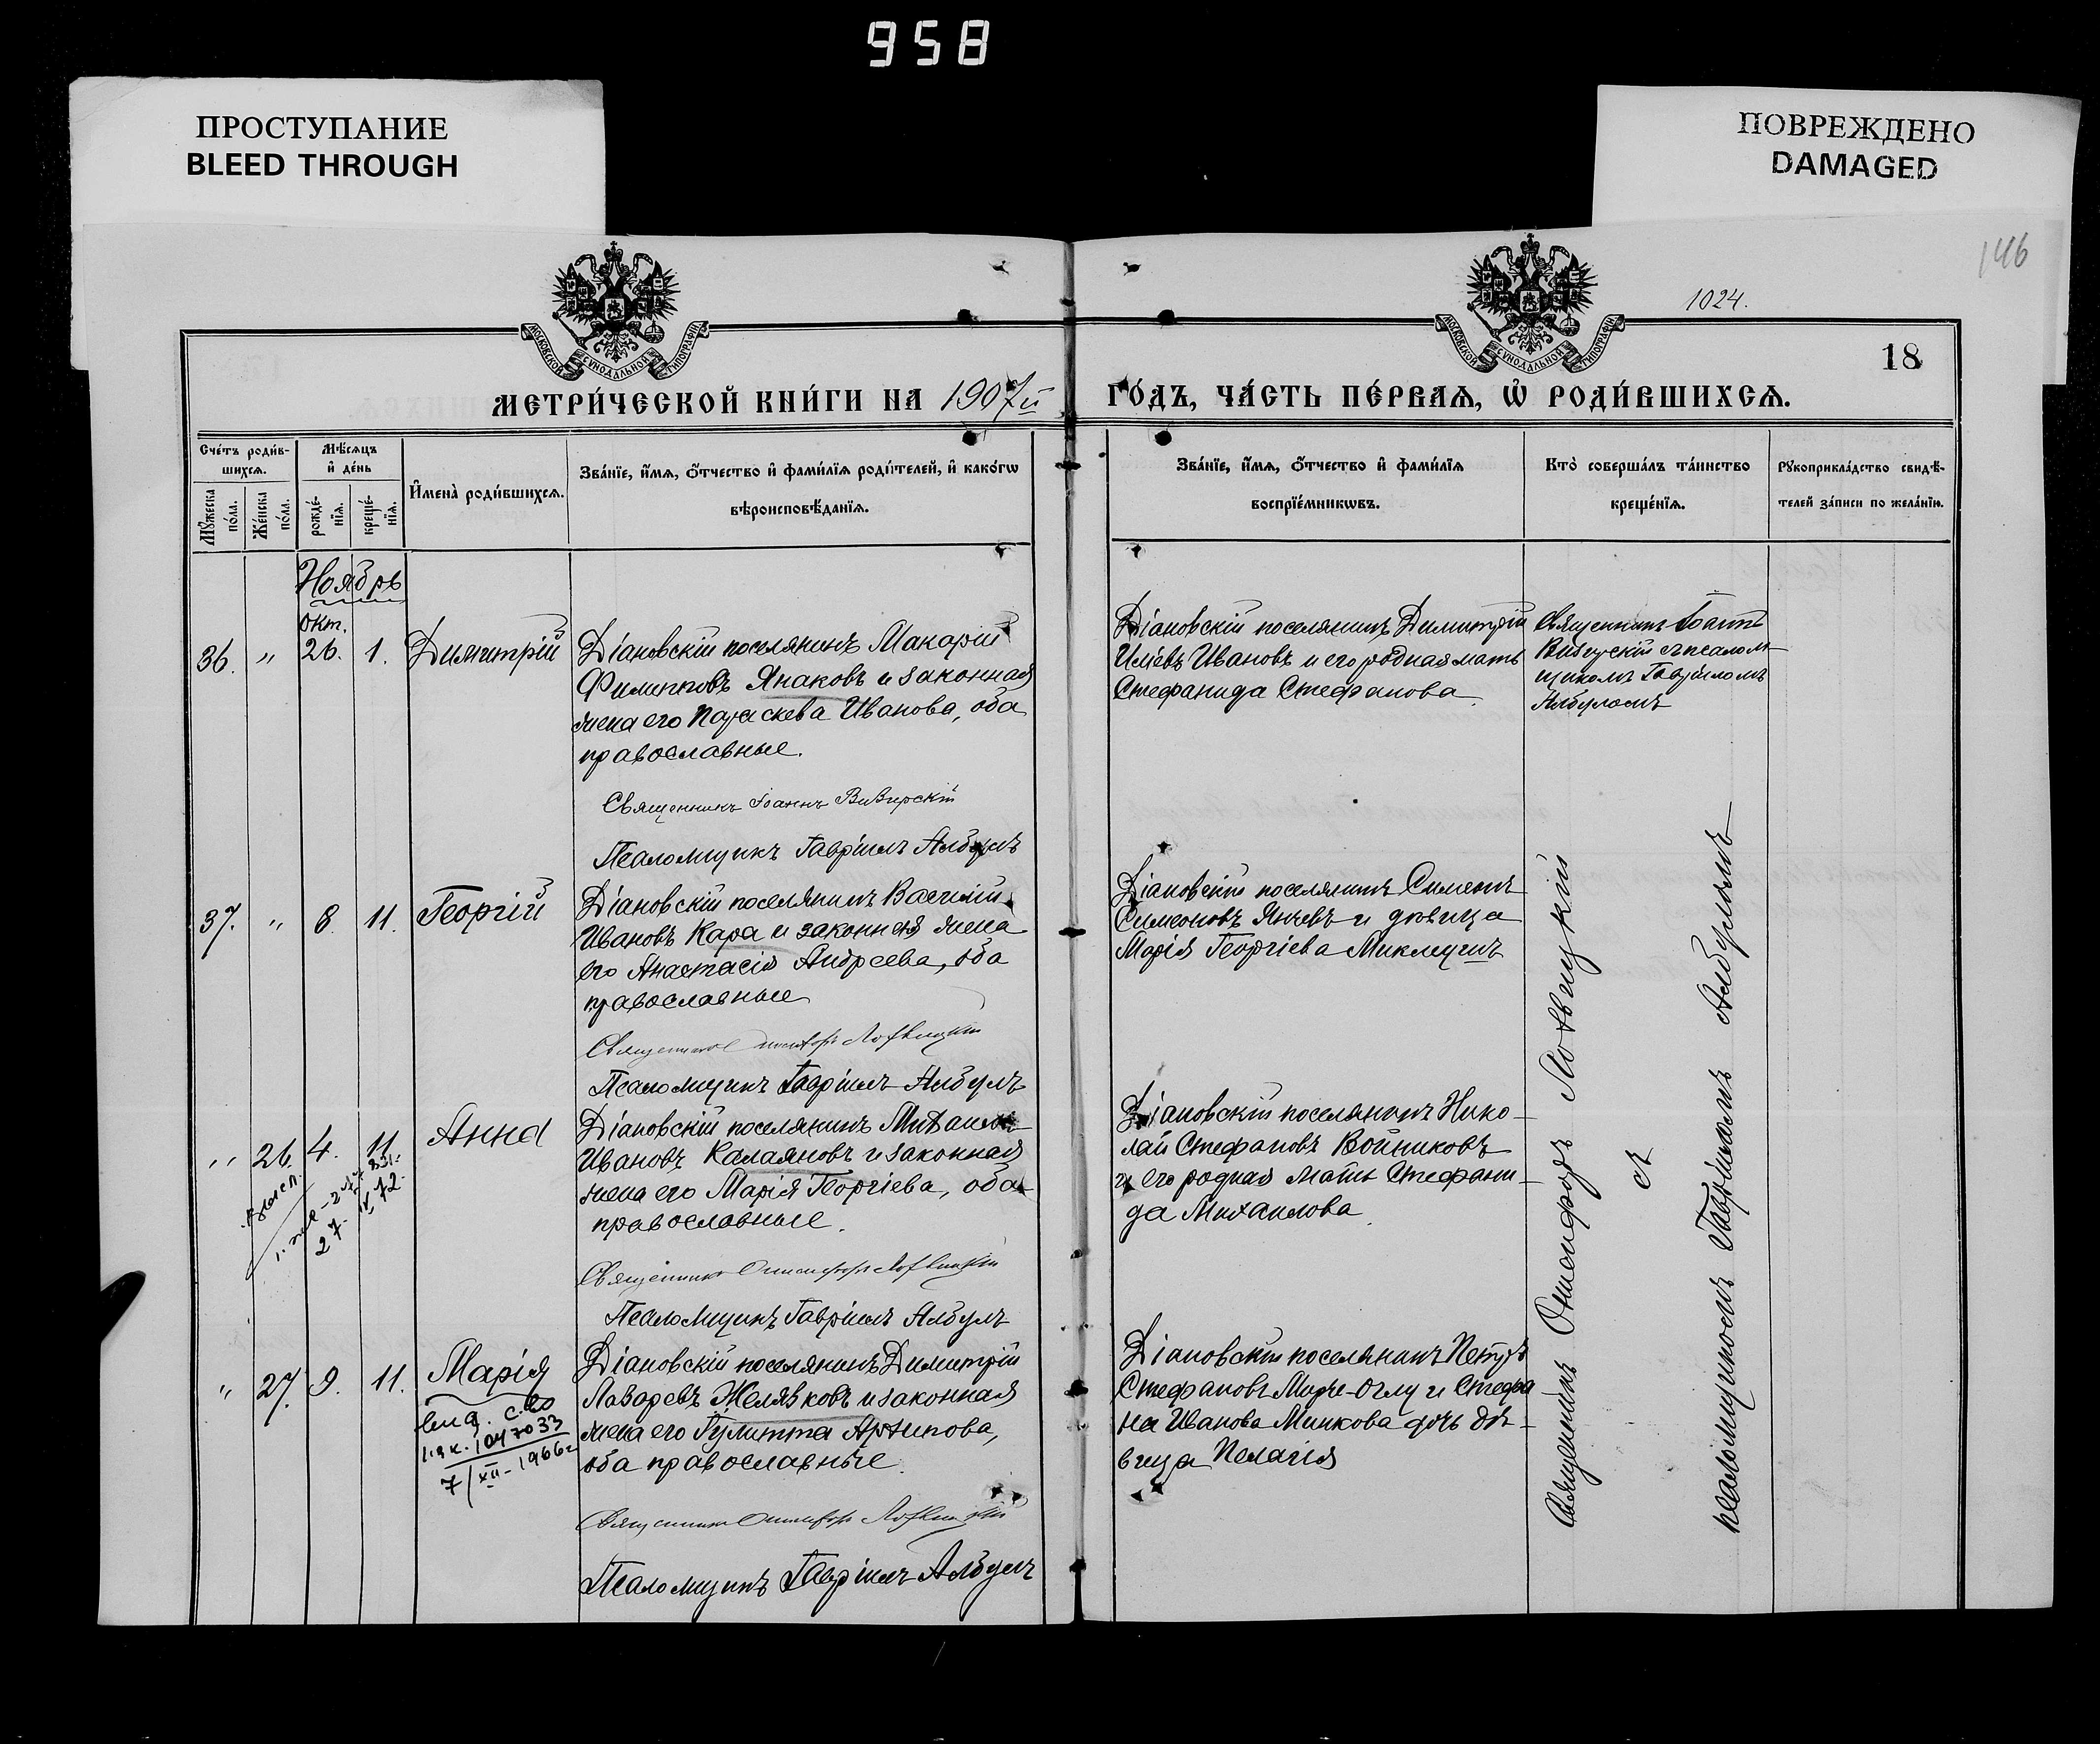 958
ПРОСТУПАНИЕ
BLEED THROUGH
ПОВРЕЖДЕНО
DAMAGED
146
1024.
18
МОСКОВСКОЙ СУНОДАЛЬНОЙ ТИПОГРАФІИ
МОСКОВСКОЙ СУНОДАЛЬНОЙ ТИПОГРАФІИ
МЕТРИ́ЧЕСКОЙ КНИ́ГИ НА 1907й ГО́ДЪ, ЧА́СТЬ ПЕ́РВАѦ, Ѡ҆ РОДИ́ВШИХСѦ.
Сче́тъ роди́в-
шихсѧ.
Мꙋ́жеска
по́ла.
Же́нска
по́ла.
Мѣ́сѧцъ
и҆ де́нь
рожде́-
нїѧ.
креще́-
нїѧ.
И҆мена̀ роди́вшихсѧ.
Зва́нїе, и҆́мѧ, ѻ҆́тчество и҆ фами́лїѧ роди́телей, и҆ како́гѡ
вѣроисповѣ́данїѧ.
Зва́нїе, и҆́мѧ, ѻ҆́тчество и҆ фами́лїѧ
воспрїе́мникѡвъ.
Кто̀ соверша́лъ та́инство
креще́нїѧ.
Рꙋкоприкла́дство свидѣ́-
телей за́писи по жела́нїю.
Ноябрь
окт.
36. " 26. 1. Димитрій
Діановскій поселянинъ Макарій
Филипповъ Янаковъ и законная
жена его Параскева Иванова, оба
православные.
Священникъ Іоаннъ Визирскій
Псаломщикъ Гавріилъ Албулъ
Діановскій поселянинъ Димитрій
Иліевъ Ивановъ и его родная мать
Стефанида Стефанова
Священникъ Іоаннъ
Визирскій съ псалом-
щикомъ Гавріиломъ
Албуломъ
37. " 8. 11. Георгій
Діановскій поселянинъ Василій
Ивановъ Кара и законная жена
его Анастасія Андреева, оба
православные
Священникъ Онисифоръ Лотвицкій
Псаломщикъ Гавріилъ Албулъ
Діановскій поселянинъ Симеонъ
Симеоновъ Янчевъ и дѣвица
Марія Георгіева
" 26. 4. 11 Анна
27. IV 72.
Діановскій поселянинъ Михаилъ
Ивановъ Калаяновъ и законная
жена его Марія Георгіева, оба
православные.
Священникъ Онисифоръ Лотвицкій
Псаломщикъ Гавріилъ Албулъ
Діановскій поселянинъ Нико-
лай Стефановъ Войниковъ
и его родная мать Стефани-
да Михаилова
" 27. 9. 11. Марія
1047033
7/XII-1966г
Діановскій поселянинъ Димитрій
Лазаревъ Желязковъ и законная
жена его Гулитта Архипова,
оба православные.
Священникъ Онисифоръ Лотвицкій
Псаломщикъ Гавріилъ Албулъ
Діановскій поселянинъ Петръ
Стефановъ и Стефа
на Иванова Минкова дочь дѣ-
вица Пелагія
Священникъ Онисифоръ Лотвицкій
съ
псаломщикомъ Гавріиломъ Албуломъ